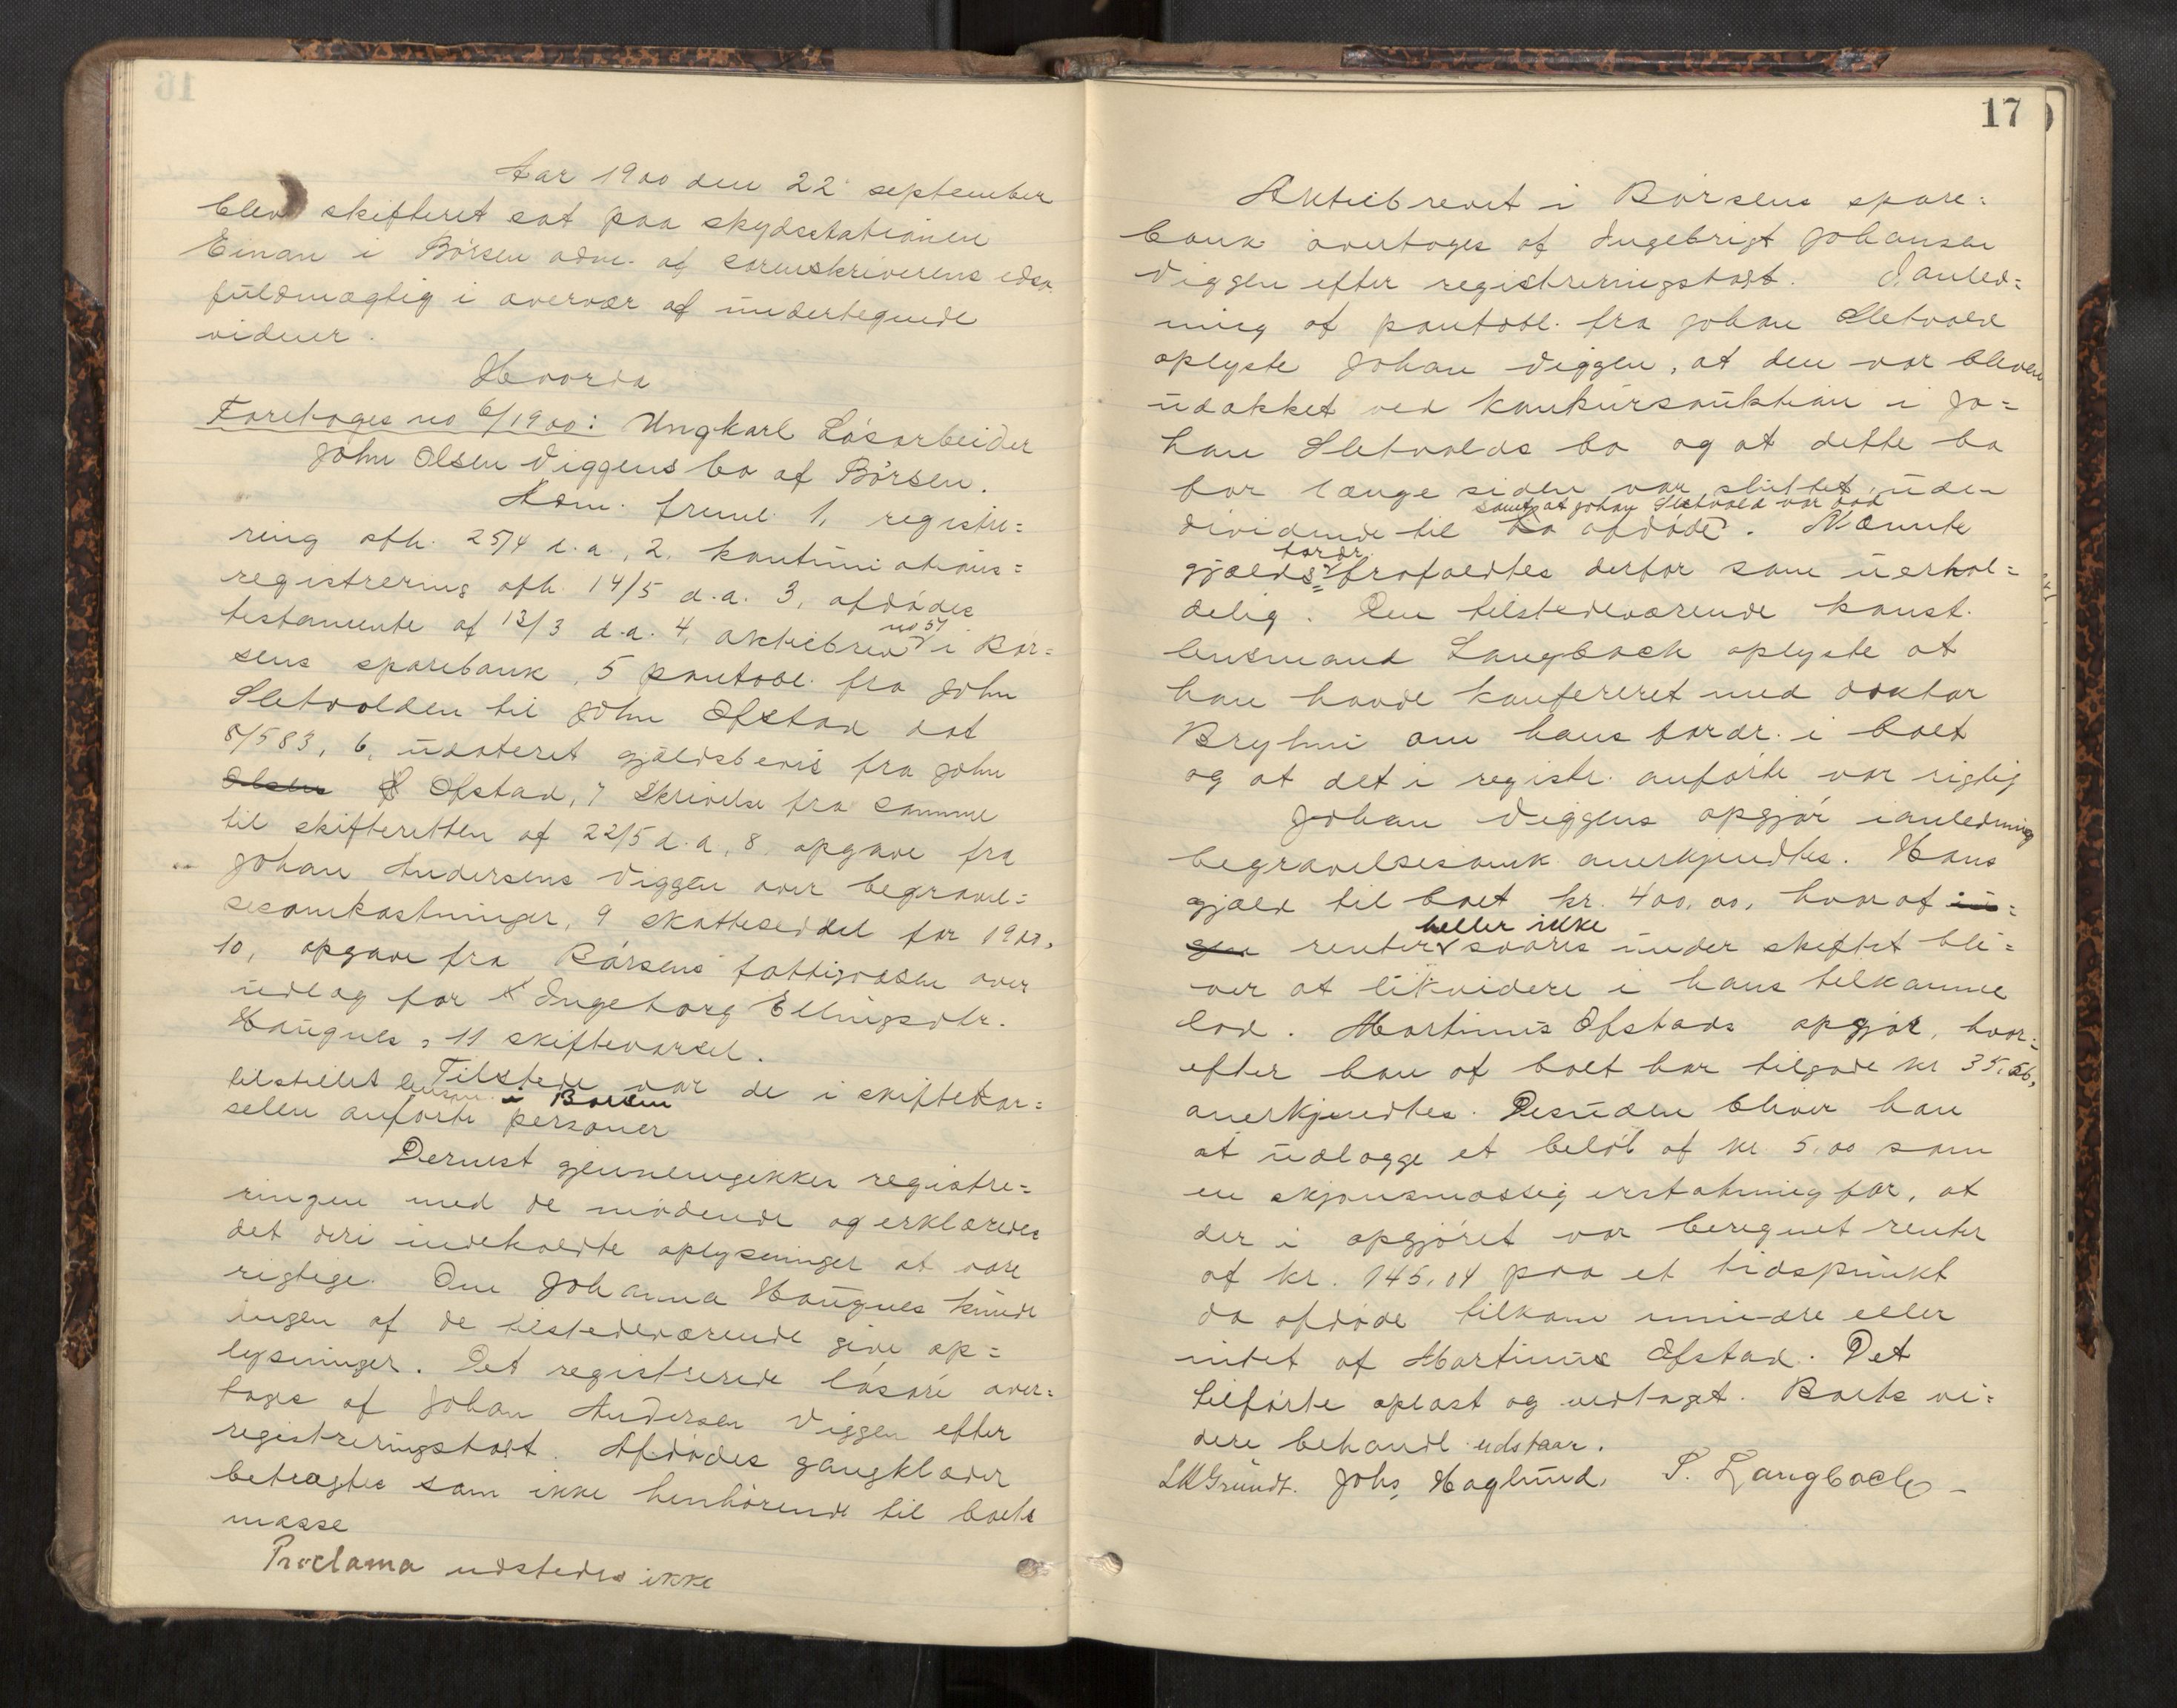 Aar 1900 den 22 september
blev skifteret sat paa skydsstationen
Einan i Børsen adm. af sorenskriverens edsv
fuldmægtig i overvær af undertegnede
vidner.
Hvorda
Foretoges no 6/1900: Ungkarl Løsarbeider
John Olsen Viggens bo af Børsen.
Adm. freml. 1, registre=
ring afh. 25/4 d.a., 2. kontinuations=
registrering afh. 14/5 d.a. 3, afdødes
testamente af 13/3 d.a. 4, aktiebrev no 57 i Bør=
sens sparebank, 5 pantobl. fra John
Sletvolden til John Ofstad dat
8/5 83, 6, udateret gjældsbevis fra John
Olsen Ofstad, 7 Skrivelse fra samme
til skifteretten af 22/5 d.a, 8, opgave fra
Johan Andersens Viggen over begravel=
sesomkostninger, 9 skatteseddel for 1900,
10, opgave fra Børsens fattigvæsen over
udlæg for Ingeborg Ellingsdtr.
Haugnes, 11 skiftevarsel.
Tilstede var de i skiftevar=
tilstillet lensm. i Børsen
selen anførte personer
Dernest gjennemgikkes registre=
ringen med de mødende og erklæredes
det deri indeholdte oplysninger at være
rigtige. Om Johanna Haugnes kunde
ingen af de tilstedeværende give op=
lysninger. Det registrerede løsøre over=
toges af Johan Andersen Viggen efter
registreringstaxt. Afdødes gangklæder
betragtes som ikke henhørende til boets
masse
Proclama udstedes ikke
17
Aktiebrevet i Børsens spare=
bank overtoges af Ingebrigt Johansen
Viggen efter registreringstaxt. I anled=
ning af pantobl. fra Johan Sletvold
oplyste Johan Viggen, at den var bleven
udakket ved konkursauktion i Jo=
han Sletvolds bo og at dette bo
for længe siden var sluttet uden
samt at Johan Sletvold var død
dividende til afdøde. Nævnte
fordr.
gjælds frafaldtes derfor som uerhol=
delig. Den tilstedeværende konst.
lensmand Langbach oplyste at
han havde konfereret med doktor
Bryhni om hans fordr. i boet
og at det i registr. anførte var rigtig
Johan Viggens opgjør ianledning
begravelsesomk. anerkjendtes. Hans
gjæld til boet kr. 400,00, hvoraf in=
heller ikke
gen renter svares under skiftet bli=
ver at likvidere i hans tilkomme
lod. Martinus Ofstads opgjør, hvor=
efter han af boet har tilgode kr 35,56,
anerkjendtes. Desuden bliver han
at udlægge et beløb af kr. 5,00 som
en skjønsmæssig erstatning for, at
der i opgjøret var beregnet renter
af kr. 145,04 paa et tidspunkt
da afdøde tilkom mindre eller
intet af Martinus Ofstad. Det
tilførte oplæst og vedtaget. Boets vi=
dere behandl. udstaar.
LM Gründt. Johs, Haglund. P. Langbach